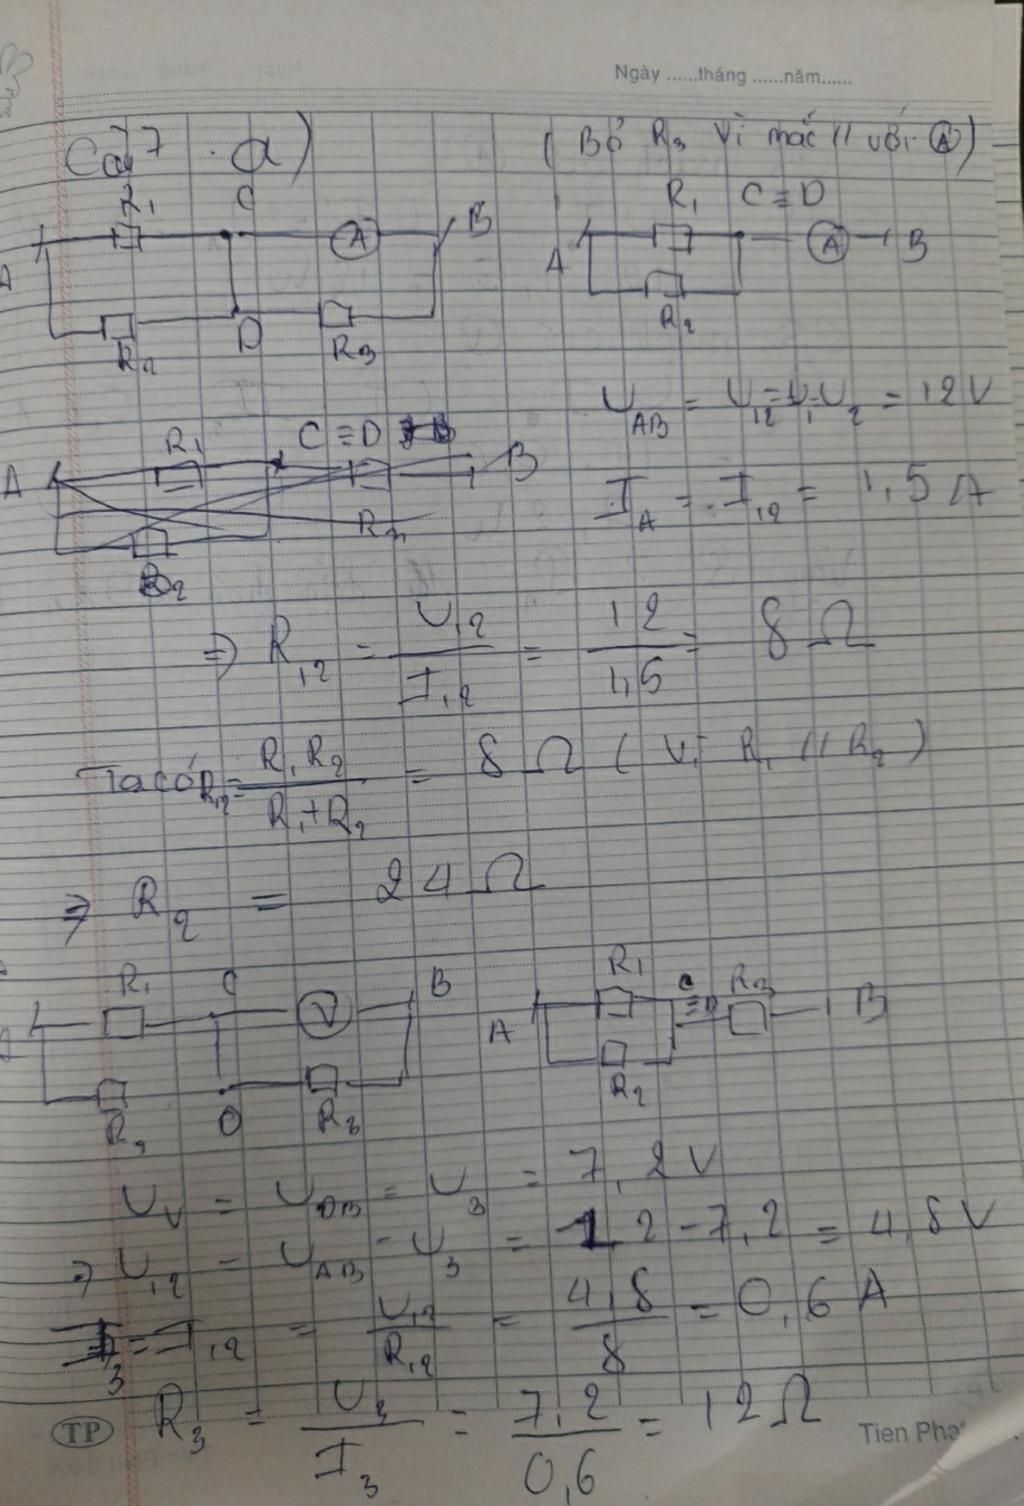 Ngày ......tháng ......năm......
Câu 7 . a)
( Bỏ R₃ vì mắc // với Ⓐ )
R₁ C A B
A R₂ D R₃
R₁ C ≡ D
A R₂ A B
U_AB = U₁₂ = U₁ = U₂ = 12V
A R₁ C ≡ D B
R₂ R₃
I_A = I₁₂ = 1,5 A
=> R₁₂ = U₁₂ / I₁₂ = 12 / 1,5 = 8 Ω
Ta có R₁₂ = R₁R₂ / R₁+R₂ = 8 Ω ( Vì R₁ // R₂ )
=> R₂ = 24 Ω
R₁ C V B
R₂ D R₃
A R₁ C ≡ D R₃ B
R₂
U_V = U_DB = U₃ = 7,2 V
=> U₁₂ = U_AB - U₃ = 12 - 7,2 = 4,8 V
I₃ = I₁₂ = U₁₂ / R₁₂ = 4,8 / 8 = 0,6 A
R₃ = U₃ / I₃ = 7,2 / 0,6 = 12 Ω
TP
Tien Pho